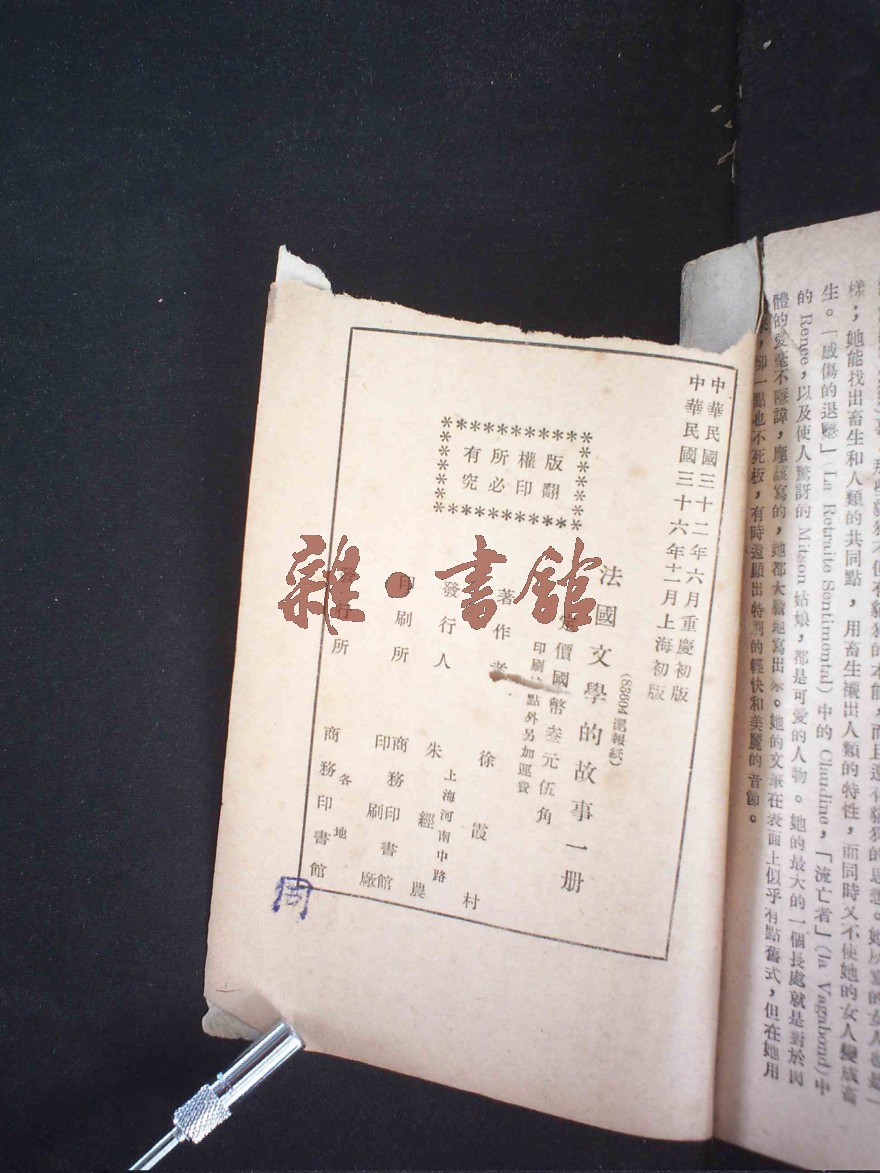 中華民國三十二年六月重慶初版
中華民國三十六年十二月上海初版
(83604 滬報紙)
法國文學的故事一册
定價國幣叁元伍角
印刷地點外另加運費
版權所有
翻印必究
著作者 徐霞村
發行人 朱經農
上海河南中路
印刷所 商務印書館
印刷廠
發行所 商務印書館
各地
周
雜·書館
樣;她能找出畜生和人類的共同點,用畜生襯出人類的特性,而同時又不使她的女人變成畜
生。「感傷的退隱」(La Retraite Sentimental)中的 Claudine,「流亡者」(la Vagabond)中
的 Renee,以及使人驚訝的 Mitson 姑娘,都是可愛的人物。她的最大的一個長處就是對於肉
體的愛毫不隱諱,應該寫的,她都大膽地寫出來。她的文筆在表面上似乎有點舊式,但在她用
,卻一點也不死板,有時還顯出特別的輕快和美麗的音節。